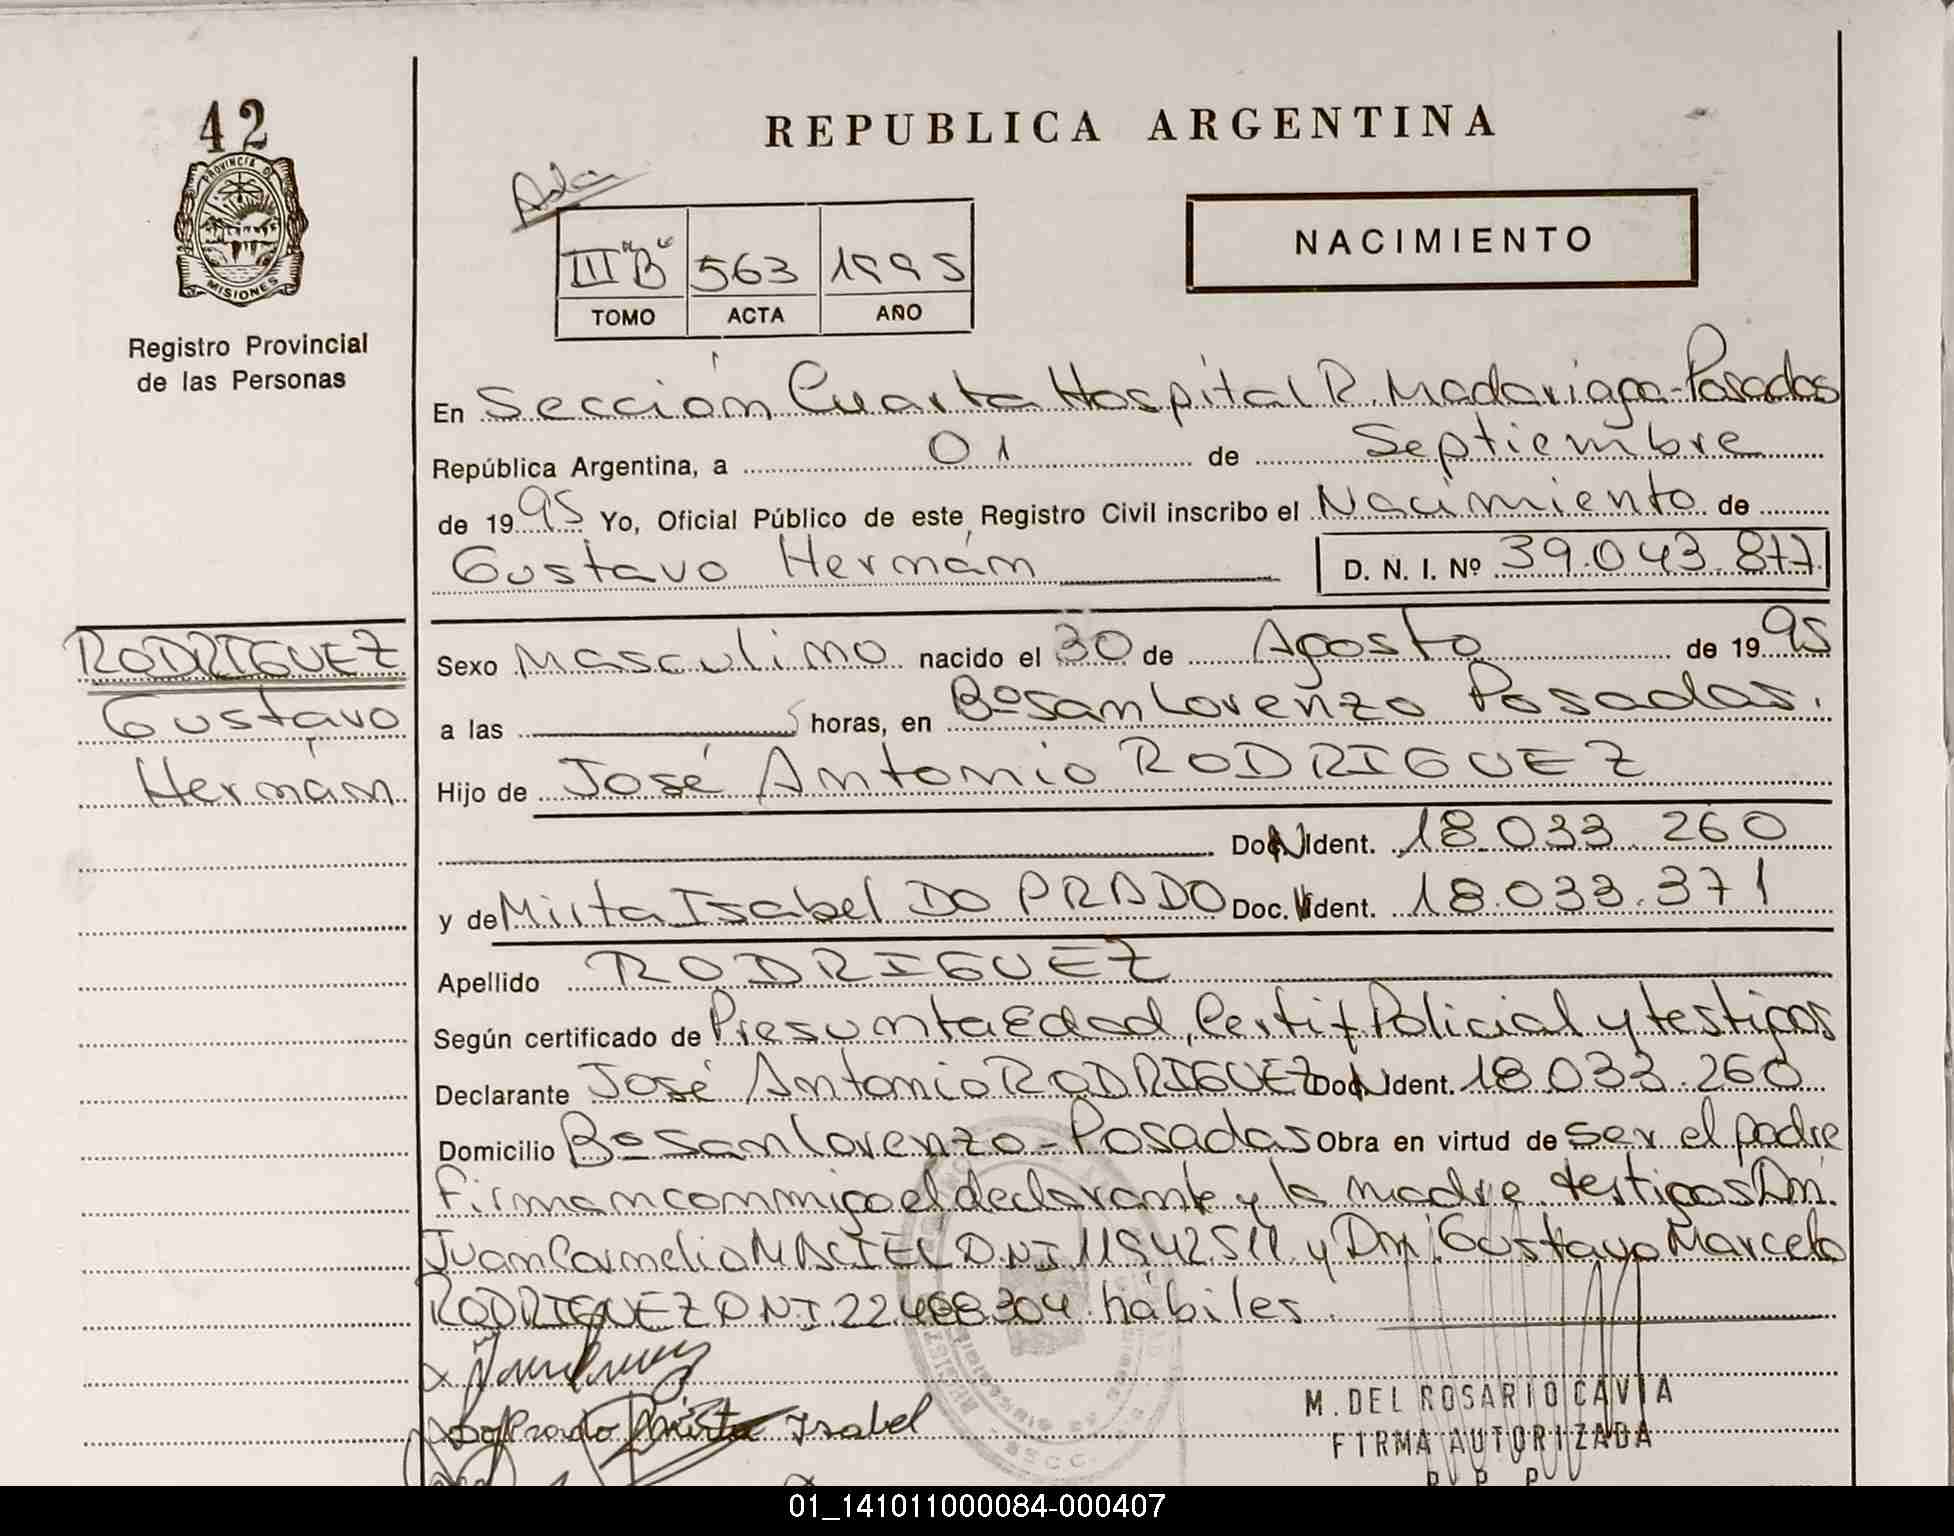 42
PROVINCIA DE
MISIONES
Registro Provincial
de las Personas
REPUBLICA ARGENTINA
NACIMIENTO
III "B" 563 1995
TOMO ACTA AÑO
En Sección Cuarta Hospital R. Madariaga-Posadas
República Argentina, a 01 de Septiembre
de 1995 Yo, Oficial Público de este Registro Civil inscribo el Nacimiento de
Gustavo Hernán D. N. I. Nº 39.043.877
RODRIGUEZ
Gustavo
Hernán
Sexo Masculino nacido el 30 de Agosto de 1995
a las horas, en Bº San Lorenzo Posadas.
Hijo de José Antonio RODRIGUEZ
Doc. Ident. 18.033.260
y de Mirta Isabel DO PRADO Doc. Ident. 18.033.371
Apellido RODRIGUEZ
Según certificado de Presunta Edad, Certif. Policial y testigos
Declarante José Antonio RODRIGUEZ Doc. Ident. 18.033.260
Domicilio Bº San Lorenzo - Posadas Obra en virtud de ser el padre
firman conmigo el declarante y la madre testigos Dn.
Juan Carmelio MACIEL D.N.I. y Dn. Gustavo Marcelo
RODRIGUEZ D.N.I. 22.468.304 hábiles.
Do Prado Mirta Isabel
M. DEL ROSARIO CAVIA
FIRMA AUTORIZADA
R. P. P.
01_141011000084-000407